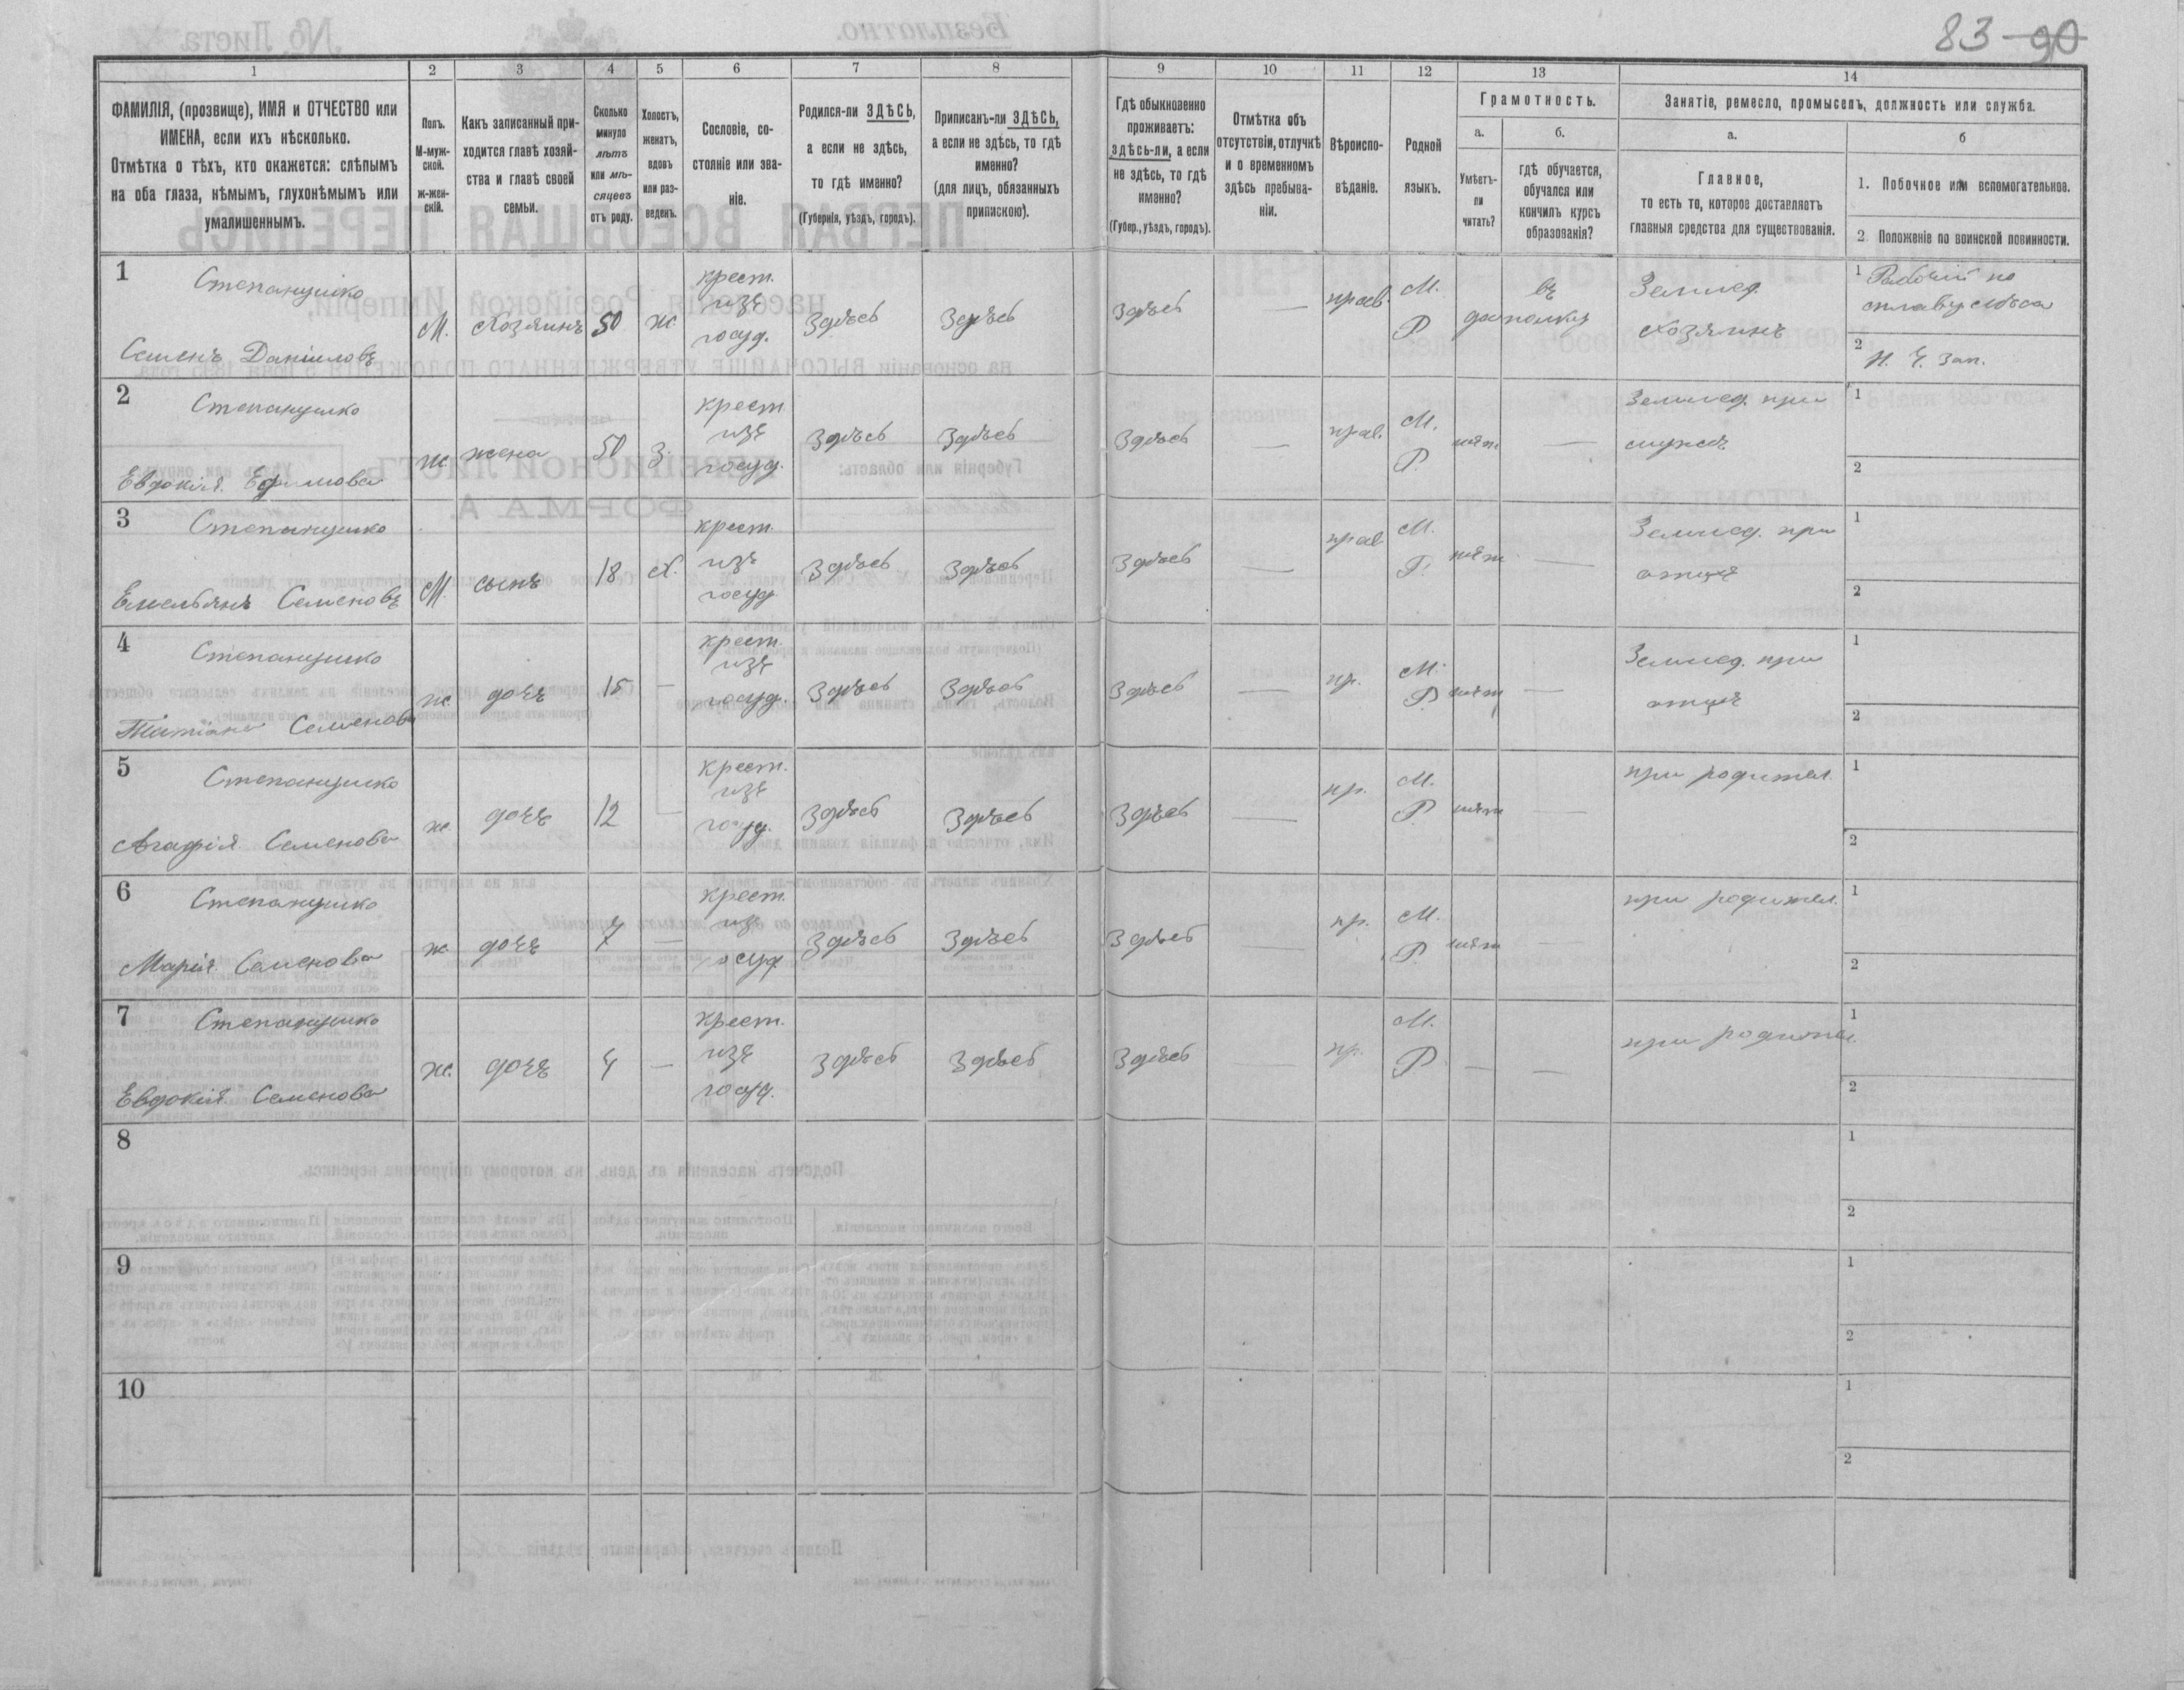 83 90
1 2 3 4 5 6 7 8 9 10 11 12 13 14
ФАМИЛІЯ, (прозвище), ИМЯ и ОТЧЕСТВО или
ИМЕНА, если ихъ нѣсколько.
Отмѣтка о тѣхъ, кто окажется: слѣпымъ
на оба глаза, нѣмымъ, глухонѣмымъ или
умалишеннымъ.
Полъ.
М-муж-
ской.
ж-жен-
скій.
Какъ записанный при-
ходится главѣ хозяй-
ства и главѣ своей
семьи.
Сколько
минуло
лѣтъ
или мѣ-
сяцевъ
отъ роду.
Холостъ,
женатъ,
вдовъ
или раз-
веденъ.
Сословіе, со-
стояніе или зва-
ніе.
Родился-ли ЗДѢСЬ,
а если не здѣсь,
то гдѣ именно?
(Губернія, уѣздъ, городъ).
Приписанъ-ли ЗДѢСЬ,
а если не здѣсь, то гдѣ
именно?
(для лицъ, обязанныхъ
припискою).
Гдѣ обыкновенно
проживаетъ:
здѣсь-ли, а если
не здѣсь, то гдѣ
именно?
(Губер., уѣздъ, городъ).
Отмѣтка объ
отсутствіи, отлучкѣ
и о временномъ
здѣсь пребыва-
ніи.
Вѣроиспо-
вѣданіе.
Родной
языкъ.
Грамотность.
а.
Умѣетъ-
ли
читать?
б.
гдѣ обучается,
обучался или
кончилъ курсъ
образованія?
Занятіе, ремесло, промыселъ, должность или служба.
а.
Главное,
то есть то, которое доставляетъ
главныя средства для существованія.
б
1. Побочное или вспомогательное.
2 Положеніе по воинской повинности.
1 Степанушко
Семенъ Даниловъ
М. Хозяинъ 50 ж. крест.
изъ
госуд. Здѣсь Здѣсь Здѣсь — прав. М.
Р. да въ
полку Землед.
хозяинъ
1 Рабочій по
сплаву лѣса
2 Н. Ч. Зап.
2 Степанушко
Евдокія Ефимова
ж. жена 50 З. крест.
изъ
госуд. Здѣсь Здѣсь Здѣсь — прав. М.
Р. нѣт — Землед. при
мужѣ
1
2
3 Степанушко
Емельянъ Семеновъ
М. сынъ 18 Х. крест.
изъ
госуд. Здѣсь Здѣсь Здѣсь — прав. М.
Р. нѣт — Землед. при
отцѣ
1
2
4 Степанушко
Татіана Семенова
ж. дочь 15 — крест.
изъ
госуд. Здѣсь Здѣсь Здѣсь — пр. М.
Р. нѣт — Землед. при
отцѣ
1
2
5 Степанушко
Агафія Семенова
ж. дочь 12 — крест.
изъ
госуд. Здѣсь Здѣсь Здѣсь — пр. М.
Р. нѣт — при родител.
1
2
6 Степанушко
Марія Семенова
ж. дочь 7 — крест.
изъ
госуд. Здѣсь Здѣсь Здѣсь — пр. М.
Р. нѣт — при родител.
1
2
7 Степанушко
Евдокія Семенова
ж. дочь 4 — крест.
изъ
госуд. Здѣсь Здѣсь Здѣсь — пр. М.
Р. — — при родител.
1
2
8
1
2
9
1
2
10
1
2